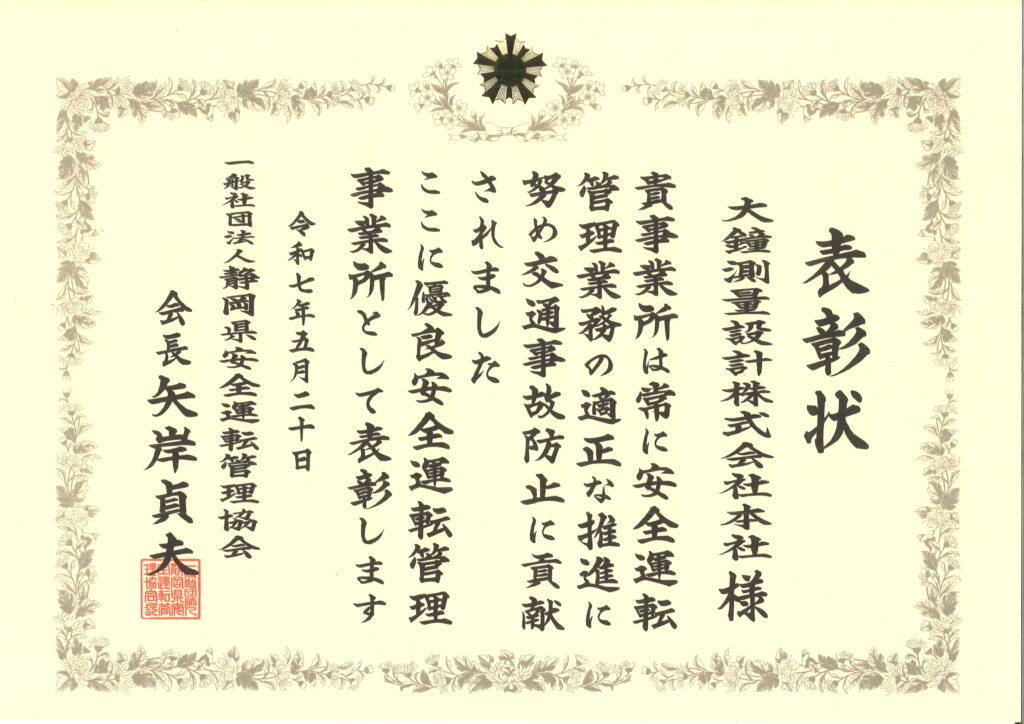 表彰状
大鐘測量設計株式会社本社 様
貴事業所は常に安全運転
管理業務の適正な推進に
努め交通事故防止に貢献
されました
ここに優良安全運転管理
事業所として表彰します
令和七年五月二十日
一般社団法人静岡県安全運転管理協会
会長 矢岸貞夫